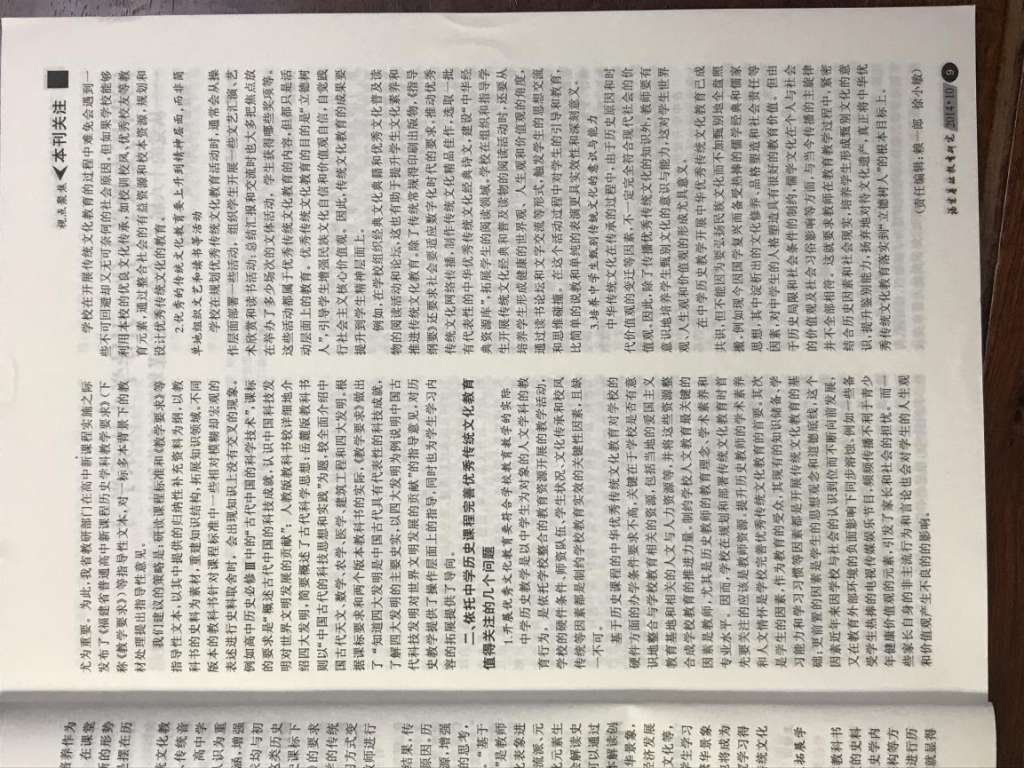 视点聚焦 本刊关注
尤为重要。为此,我省教研部门在高中新课程实施之际
发布了《福建省普通高中新课程历史学科教学要求》(下
称《教学要求》)等指导性文本,对一标多本背景下的教
材处理提出指导性意见。
我们建议的策略是:研读课程标准和《教学要求》等
指导性文本,以其中提供的归纳性补充资料为纲,以教
科书的史料为素材,重建知识结构,拓展知识领域,不同
版本的教科书针对课程标准中一些相对模糊却宏观的
表述进行史料取舍时,会出现知识上没有交叉的现象。
例如高中历史必修Ⅲ中的“古代中国的科学技术”,课标
的要求是“概述古代中国的科技成就,认识中国科技发
明对世界文明发展的贡献”;人教版教科书较详细地介
绍四大发明,简要概述了古代科学思想;岳麓版教科书
则以“中国古代的科技思想和实践”为题,较全面介绍中
国古代天文、数学、农学、医学、建筑工程和四大发明,根
据课标要求和两个版本教科书的实际,《教学要求》做出
了“知道四大发明是中国古代具有代表性的科技成就,
了解四大发明的主要史实;以四大发明为例说明中国古
代科技发明对世界文明发展的贡献”的指导意见,对历
史教学提供了操作层面上的指导,同时也为学生学习内
容的拓展提供了导向。
二、依托中学历史课程完善优秀传统文化教育
值得关注的几个问题
1.开展优秀文化教育要符合学校教育教学的实际
中学历史教学是以中学生为对象的人文学科的教
育行为,是依托学校整合的教育资源开展的教学活动,
学校的硬件条件、师资队伍、学生状况、文化传承和校风
传统等因素都是制约学校教育实效的关键性因素,且缺
一不可。
基于历史课程的中华优秀传统文化教育对学校的
硬件方面的办学条件要求不高,关键在于学校是否有意
识地整合与学校教育相关的资源,包括当地的爱国主义
教育基地和相关的人文与人力资源等,并将这些资源整
合成学校教育的推进力量,制约学校人文教育最关键的
因素是教师,尤其是历史教师的教育理念、学术素养和
专业水平。因而,学校在规划和部署传统文化教育时首
先要关注的应该是教师资源,提升历史教师的学术素养
和人文情怀是学校完善优秀传统文化教育的首要,其次
是学生的因素,作为教育的受众,其现有的知识储备、学
习能力和学习习惯等因素都是开展传统文化教育的基
础;更前置的因素是学生的思想观念和道德底线,这个
因素近年来因学校与社会的认识到位而不断向前发展,
又在教育外部环境的负面影响下同步溶蚀、例如一些备
受学生热捧的电视传媒娱乐节目,频频传播不利于青少
年健康价值观的元素,引发了家长和社会的担忧。而一
些家长自身的非主流行为和言论也会对学生的人生观
和价值观产生不良的的影响。
学校在开展传统文化教育的过程中难免会遇到一
些不可回避却又无可奈何的社会原因,但如果学校能够
利用本校的优良文化传承,如校训校风、优秀校友等教
育元素,通过整合社会的有益资源和校本资源,规划和
设计优秀传统文化的教育。
2.优秀的传统文化教育要上升到精神层面,而非简
单地组织文艺和读书等活动
学校在规划优秀传统文化教育活动时,通常会从操
作层面部署一些活动,组织学生开展一些文艺汇演、艺
术欣赏和读书活动;总结汇报和交流时也大多把焦点放
在举办了多少场次的文体活动,学生获得哪些奖项等。
这些活动都属于优秀传统文化教育的内容,但都只是活
动层面上的教育。优秀传统文化教育的目的是“立德树
人”,引导学生增强民族文化自信和价值观自信,自觉践
行社会主义核心价值观。因此,传统文化教育的成果要
提升到学生精神层面上。
例如,在学校组织经典文化典籍和优秀文化普及读
物的阅读活动和论坛,这也有助于提升学生文化素养和
推进传统文化教育,除了传统常规得印刷出版物,《指导
纲要》还要求社会要适应数字化时代的要求,推动优秀
传统文化网络传播,制作传统文化精品佳作,选取一批
有代表性的中华优秀传统文化经典诗文,建设“中华经
典资源库”,拓展学生的阅读领域,学校在组织和指导学
生开展传统文化经典和普及读物的阅读活动时,还要从
培养学生形成健康的世界观、人生观和价值观的角度,
通过读书论坛和文字交流等形式,触发学生的思想交流
和思维碰撞。在这个活动过程中对学生的引导和教育,
比简单的说教和单纯的表演更具实效性和深刻意义。
3.培养中学生甄别传统文化的意识与能力
中华传统文化在传承的过程中,由于历史原因和时
代价值观的变迁等因素,不一定完全符合现代社会的价
值观,因此,除了传播优秀传统文化的知识外,教师要有
意识地培养学生甄别文化的意识与能力,这对学生世界
观、人生观和价值观的形成尤具意义。
在中学历史教学开展中华优秀传统文化教育已成
共识,但不能因为要弘扬民族文化而不加甄别地全盘照
搬,例如现今因国学复兴而备受热捧的儒学经典和儒家
思想,其中淀析出的文化修养、品格塑造和社会责任等
因素,对中学生的人格塑造具有很好的教育价值。但由
于历史局限和社会条件的制约,儒学文化在个人与社会
的价值观及社会习俗影响等方面,与当今传播的主旋律
并不全部相符。这就要求教师在教育教学过程中,紧密
结合历史因素和社会现实,培养学生形成甄别文化的意
识,提升鉴别能力,扬弃地对待文化遗产,将中华优
秀传统文化教育落实到“立德树人”的根本目标上。
(责任编辑:赖一郎 徐小敏)
福建基础教育研究 2014·10 9